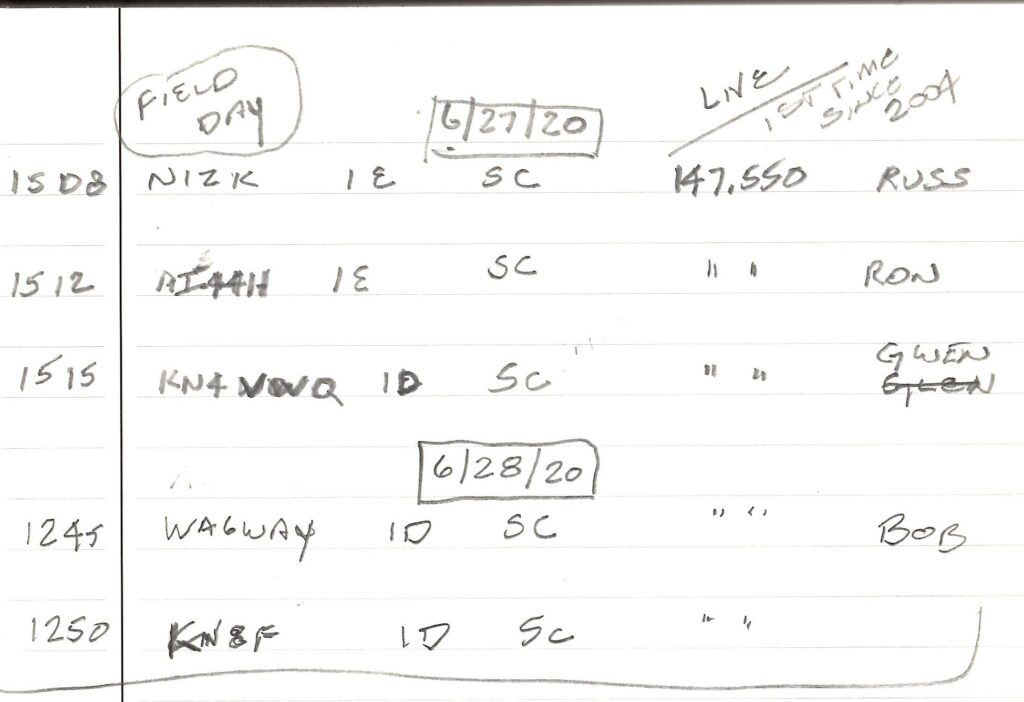 FIELD DAY
6/27/20
LIVE
1ST TIME SINCE 2004
1508 N1ZK 1E SC 147.550 RUSS
1512 1E SC " " RON
1515 1D SC " " GWEN
6/28/20
1245 WA6WAY 1D SC " " BOB
1250 KN8F 1D SC " "